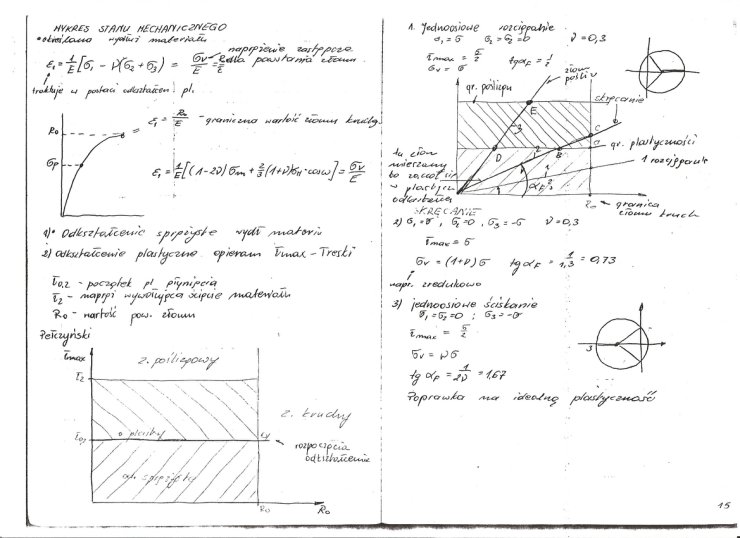 WYKRES STANU MECHANICZNEGO
• określano wydłuż materiału
naprężenie zastępcze
ε₁ = 1/E [σ₁ - ν(σ₂ + σ₃)] = σν/E = R₀/E dla powstania złomu
traktuje w postaci odkształceń pl.
R₀
σp
ε₁ = R₀/E - graniczna wartość złomu kruchego
ε₁ = 1/E [(1-2ν) σm + 2/3 (1+ν) σH · cos ω] = σν/E
1)• Odkształcenie sprężyste wydł materiału
2) odkształcenie plastyczne opieram τmax - Treski
τ0,2 - początek pł płynięcia
τ₂ - napręż wywołujące ścięcie materiału
R₀ - wartość pow. złomu
Pełczyński
τmax
z. poślizgowy
τ₂
z. kruchy
o. plastky
τ0,2
rozpoczęcia
odkształcenie
odk. sprężyste
R₀
R₀
1. Jednoosiowe rozciąganie
σ₁ = σ σ₂ = σ₃ = 0 ν = 0,3
τmax = σ/2 tg αF = 1/2
σν = σ
złom
poślizg
gr. poślizgu
E
skręcanie
3
C
D
2
B
a
gr. plastyczności
1 rozciąganie
1
αF
tu złom
mieszany
bo zaczął się
w plastycz.
odkształcenia
R₀
granica
złomu kruch
SKRĘCANIE
2) σ₁ = σ, σ₂ = 0, σ₃ = -σ ν = 0,3
τmax = σ
σν = (1+ν) σ tg αF = 1/1,3 = 0,73
napr. zredukowo
3) jednoosiowe ściskanie
σ₁ = σ₂ = 0 ; σ₃ = -σ
τmax = σ/2
σν = νσ
tg αF = 1/2ν = 1,67
3
Poprawka na idealną plastyczność
15